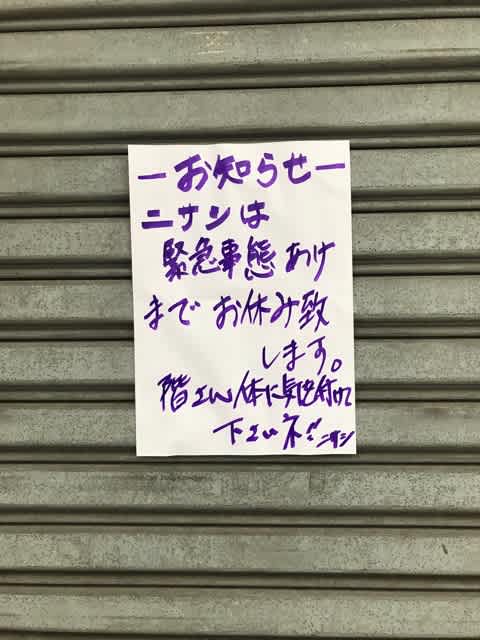 ーお知らせー
ニサンは
緊急事態あけ
までお休み致
します。
階さん体に気を付けて
下さいネ!! ニサン